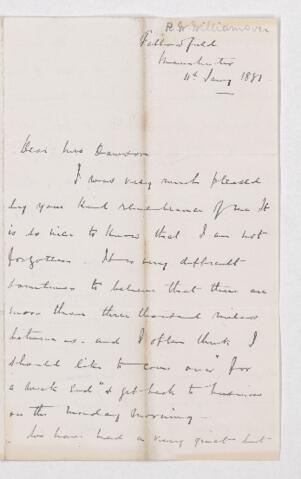 R W Williamson
Fallowfield
Manchester
11th Jany 1881
Dear Mrs Dawson
I was very much pleased
by your kind remembrance of me It
is so nice to know that I am not
forgotten. It is very difficult
sometimes to believe that there are
more than three thousand miles
between us. and I often think I
should like to come over "for
a week End" & get back to business
on the Monday morning -
We have had a very quiet but